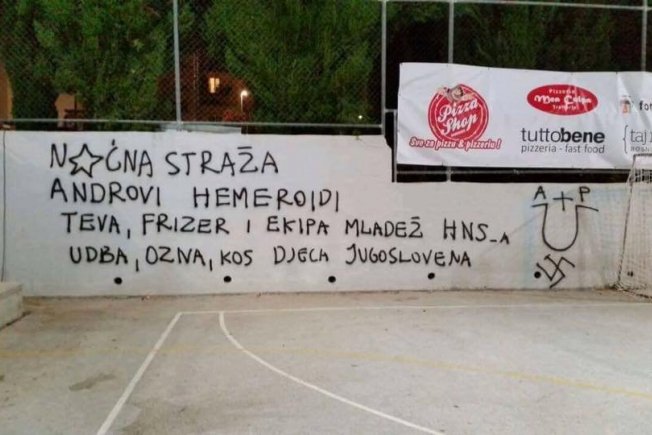 N☆ĆNA STRAŽA
ANDROVI HEMEROIDI
TEVA, FRIZER I EKIPA MLADEŽ HNS-A
UDBA, OZNA, KOS DJECA JUGOSLOVENA
A P
U
Pizza Shop
Sve za pizzu & pizzeriu!
Pizzeria
Mon Calon
tuttobene
pizzeria - fast food
for
{taj